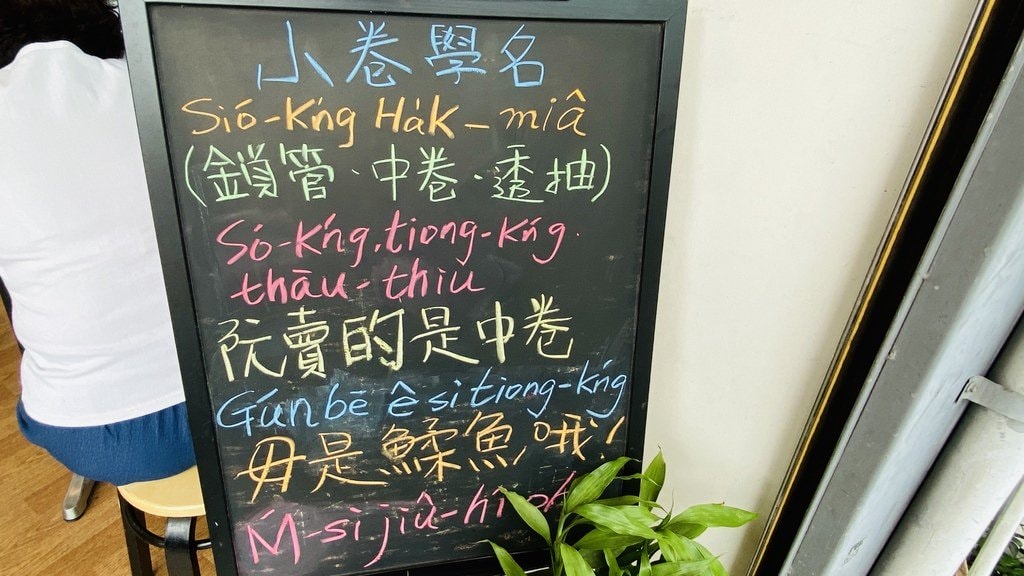 小卷學名
Sió-kńg Ha̍k-miâ
(鎖管、中卷、透抽)
Só-kńg, tiong-kńg.
thāu-thiu
阮賣的是中卷
Gún bē ê sī tiong-kńg
毋是鰇魚哦!
M̄-sī jiû-hî